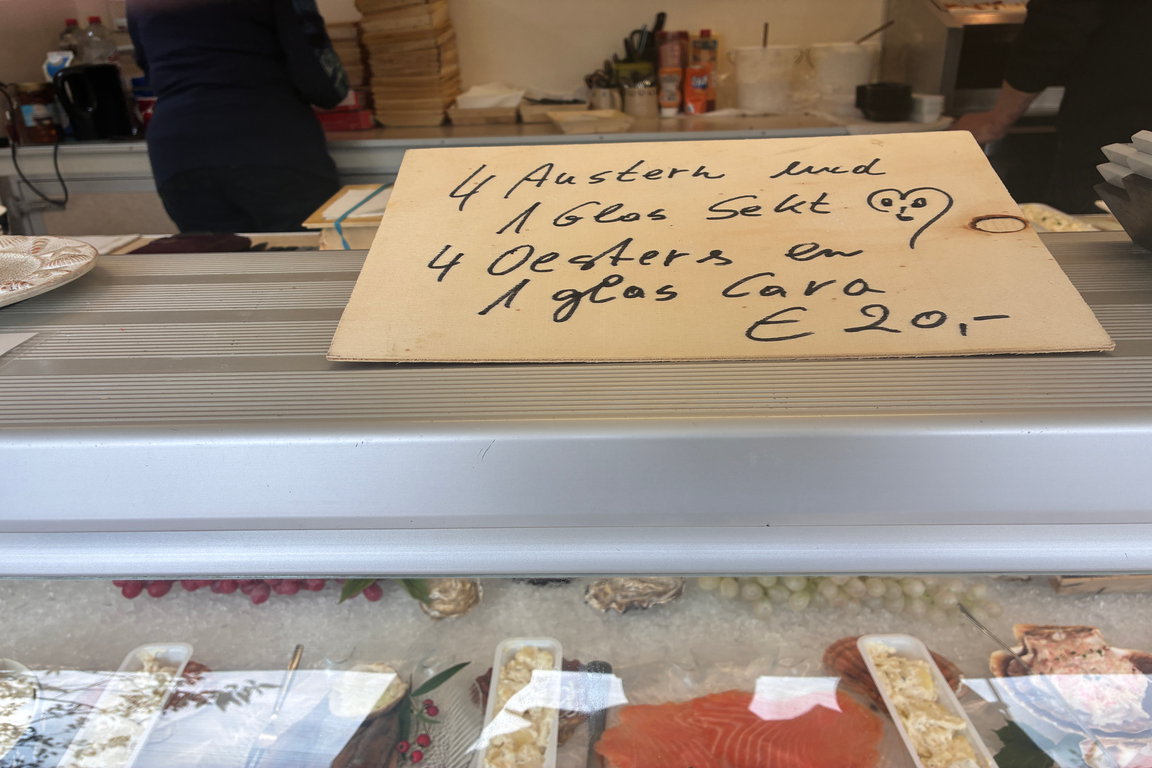 4 Austern und
1 Glas Sekt
4 Oesters en
1 glas Cava
€ 20,-